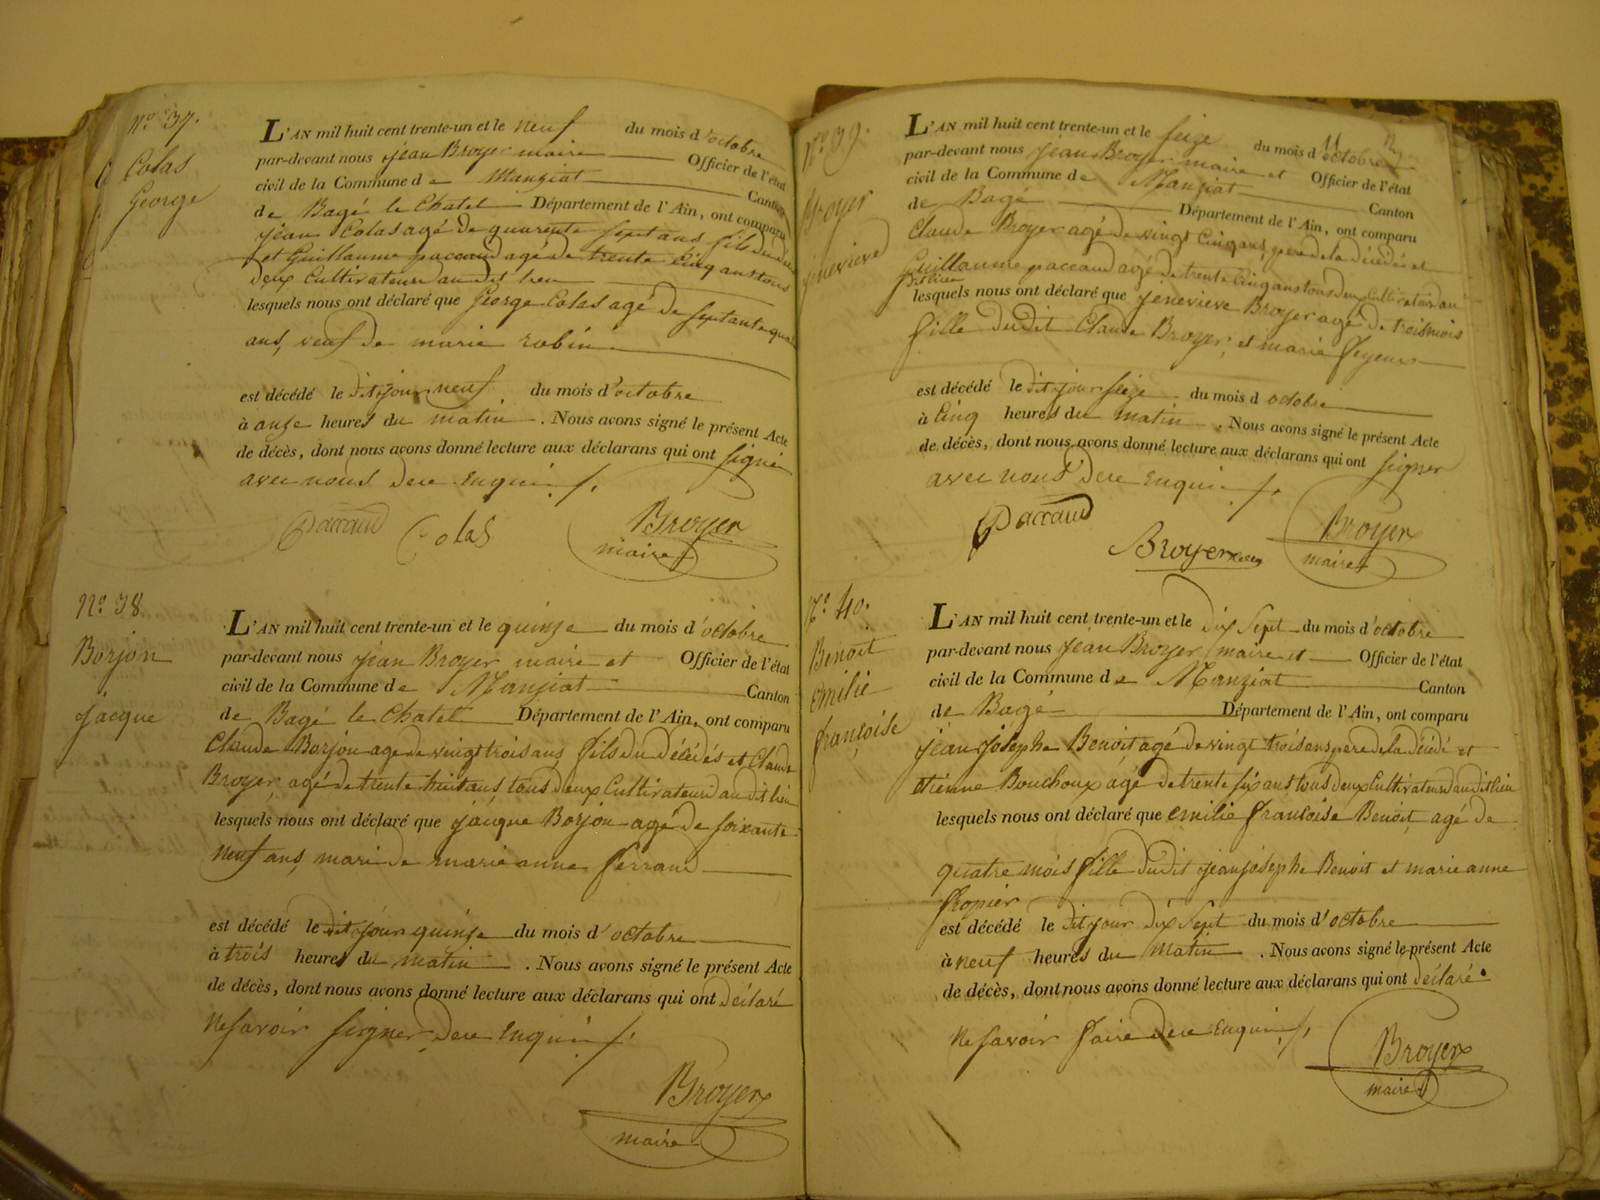 N.o 37.
Colas
George
L'AN mil huit cent trente-un et le neuf du mois d'octobre
par-devant nous jean Broyer maire Officier de l'état
civil de la Commune de Manziat Canton
de Bagé le Chatel Département de l'Ain, ont comparu
jean Colas agé de quarente sept ans fils du
et Guillaume paccaud agé de trente cinq ans tous
deux Cultivateurs audit lieu
lesquels nous ont déclaré que George Colas agé de septante qua
ans, veuf de marie robin
est décédé le dit jour neuf du mois d'octobre
à onze heures du matin. Nous avons signé le présent Acte
de décès, dont nous avons donné lecture aux déclarans qui ont signé
avec nous de ce Enquis
Paccaud Colas Broyer
maire
N.o 38.
Borjon
jacque
L'AN mil huit cent trente-un et le quinze du mois d'octobre
par-devant nous jean Broyer maire et Officier de l'état
civil de la Commune de Manziat Canton
de Bagé le Chatel Département de l'Ain, ont comparu
Claude Borjon agé de vingt trois ans fils du décédés et Claude
Broyer agé de trente huit ans, tous deux Cultivateurs audit lieu
lesquels nous ont déclaré que jacque Borjon agé de soixante
neuf ans, mari de marie anne ferrand
est décédé le dit jour quinze du mois d'octobre
à trois heures du matin. Nous avons signé le présent Acte
de décès, dont nous avons donné lecture aux déclarans qui ont déclaré
ne savoir signer de ce Enquis
Broyer
maire
N.o 39.
Broyer
jenevieve
L'AN mil huit cent trente-un et le seize du mois d'octobre
par-devant nous jean Broyer maire et Officier de l'état
civil de la Commune de Manziat Canton
de Bagé Département de l'Ain, ont comparu
Claude Broyer agé de vingt Cinq ans, pere de la décédé et
Guillaume paccaud agé de trente Cinq ans tous deux Cultivateurs au
dit lieu
lesquels nous ont déclaré que jenevieve Broyer agé de trois mois
fille dudit Claude Broyer, et marie
est décédé le dit jour seize du mois d octobre
à Cinq heures du matin. Nous avons signé le présent Acte
de décès, dont nous avons donné lecture aux déclarans qui ont signer
avec nous de ce Enquis
Paccaud
Broyer
Broyer
maire
N.o 40.
Benoit
emilie
françoise
L'AN mil huit cent trente-un et le dix Sept du mois d'octobre
par-devant nous jean Broyer maire et Officier de l'état
civil de la Commune de Manziat Canton
de Bagé Département de l'Ain, ont comparu
jean josephe Benoit agé de vingt trois ans pere de la décédé et
etienne Bouchoux agé de trente six ans tous deux Cultivateurs audit lieu
lesquels nous ont déclaré que emilie françoise Benoit agé de
quatre mois fille dudit jean josephe Benoit et marie anne
est décédé le dit jour dix Sept du mois d'octobre
à neuf heures du matin. Nous avons signé le présent Acte
de décès, dont nous avons donné lecture aux déclarans qui ont déclaré
ne savoir faire de ce Enquis
Broyer
maire